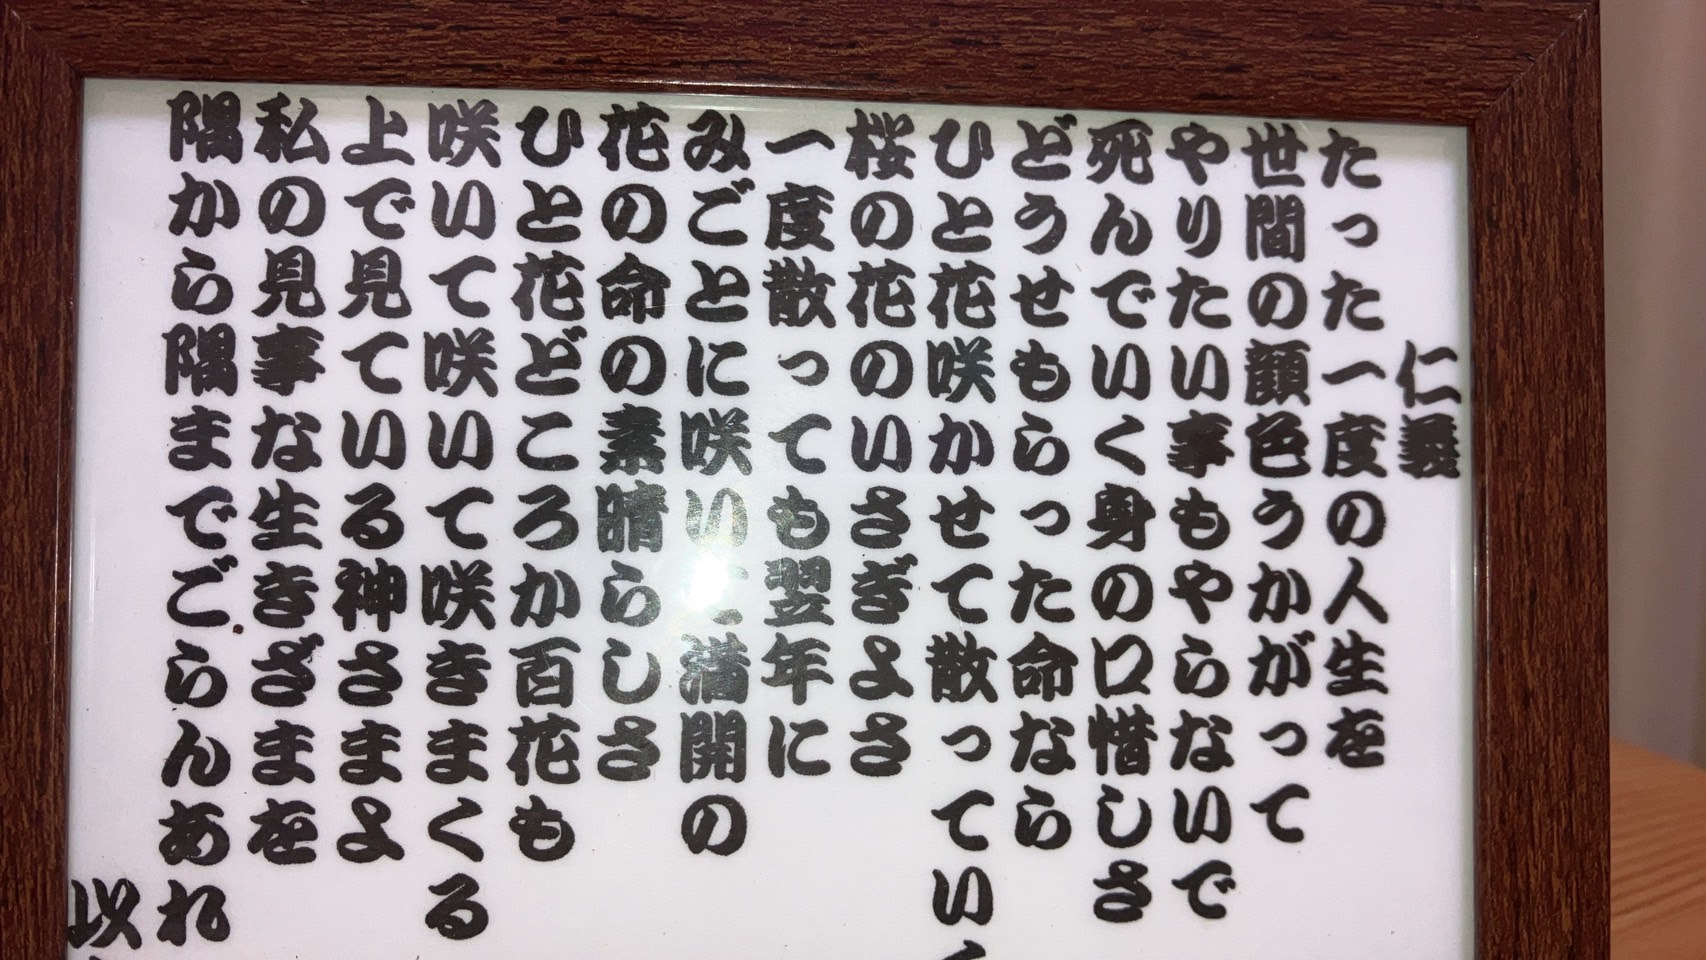 仁義
たった一度の人生を
世間の顔色うかがって
やりたい事もやらないで
死んでいく身の口惜しさ
どうせもらった命なら
ひと花咲かせて散っていく
桜の花のいさぎよさ
一度散っても翌年に
みごとに咲いた満開の
花の命の素晴らしさ
ひと花どころか百花も
咲いて咲いて咲きまくる
上で見ている神さまよ
私の見事な生きざまを
隅から隅までごらんあれ
以